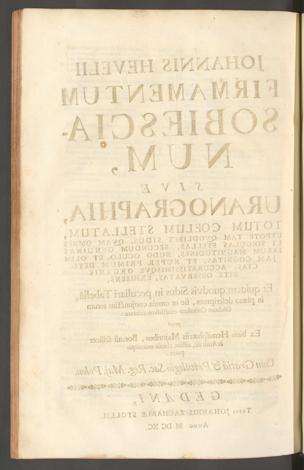 JOHANNIS HEVELII
FIRMAMENTUM
SOBIESCIA-
NUM,
SIVE
URANOGRAPHIA,
TOTUM COELUM STELLATUM,
UTPOTE TAM QUODLIBET SIDUS, QUAM OMNES
ET SINGULAS STELLAS, SECUNDUM GENUINAS
EARUM MAGNITUDINES, NUDO OCULO, ET OLIM
JAM COGNITAS, ET NUPER PRIMUM DETE-
CTAS, ACCURATISSIMISQUE ORGANIS
RITE OBSERVATAS, EXHIBENS.
Et quidem quodvis Sidus in peculiari Tabella,
in plano descriptum, sic ut omnia conjunctim totum
Globum Coelestem exactissime referant:
prout
Ex binis Hemisphaeriis Majoribus, Boreali scilicet
&
Cum Gratia & Privilegio Sac. Reg. Maj. Polon.
GEDANI,
Typis JOHANNIS-ZACHARIAE STOLLII.
Anno M DC XC.